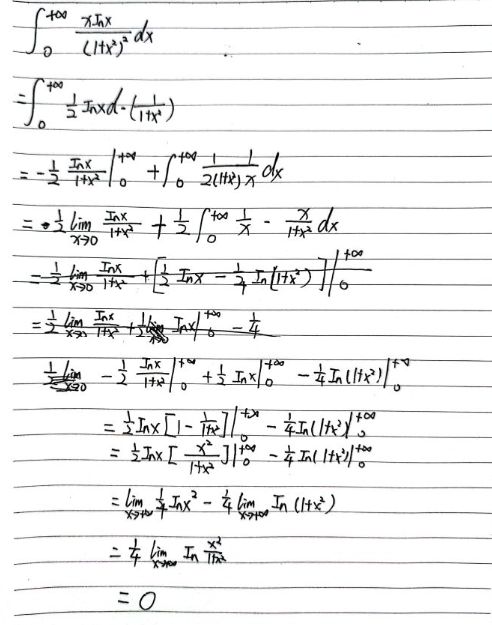 ∫₀^{+∞} xlnx/(1+x²)² dx
=∫₀^{+∞} 1/2 lnx d -(1/(1+x²))
= -1/2 lnx/(1+x²) |₀^{+∞} + ∫₀^{+∞} 1/(2(1+x²)) 1/x dx
= -1/2 lim_{x→0} lnx/(1+x²) + 1/2 ∫₀^{+∞} 1/x - x/(1+x²) dx
= 1/2 lim_{x→0} lnx/(1+x²) + [1/2 lnx - 1/4 ln(1+x²)] |₀^{+∞}
= 1/2 lim_{x→0} lnx/(1+x²) + 1/2 lnx |₀^{+∞} - 1/4
-1/2 lnx/(1+x²) |₀^{+∞} + 1/2 lnx |₀^{+∞} - 1/4 ln(1+x²) |₀^{+∞}
= 1/2 lnx [1 - 1/(1+x²)] |₀^{+∞} - 1/4 ln(1+x²) |₀^{+∞}
= 1/2 lnx [x²/(1+x²)] |₀^{+∞} - 1/4 ln(1+x²) |₀^{+∞}
= lim_{x→+∞} 1/4 lnx² - 1/4 lim_{x→+∞} ln(1+x²)
= 1/4 lim_{x→+∞} ln x²/(1+x²)
= 0